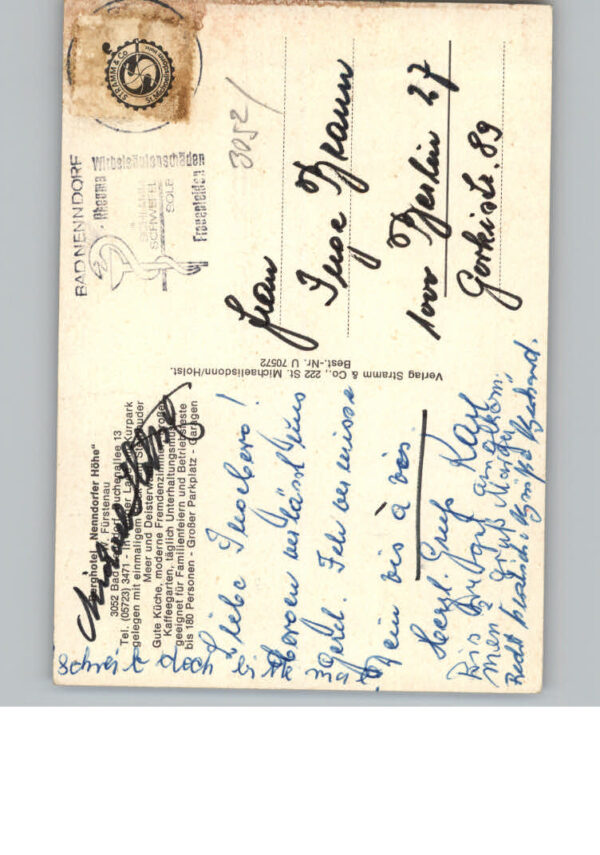 STRAMM & CO
BAD NENNDORF
Wirbelsäulenschäden
Rheuma
SCHLAMM
SCHWEFEL
SOLE
Frauenleiden
3052/
Frau
Inge Braun
1000 Berlin 27
Gorkistr. 89
Verlag Stramm & Co., 222 St. Michaelisdonn/Holst.
Best.-Nr. U 70572
Berghotel „Nenndorfer Höhe"
W. Fürstenau
3052 Bad Nenndorf, Buchenallee 13
Tel. (05723) 3471 - In Landes Kurpark
gelegen mit einmaligem Steinhuder
Meer und Deister
Gute Küche, moderne Fremdenzimmer, großer
Kaffeegarten, täglich Unterhaltungsmusik
geeignet für Familienfeiern und Betriebsfeste
bis 180 Personen - Großer Parkplatz - Garagen
Liebe
Morgen verlässt uns
Gerd. Ich vermisse
Dein vis à vis.
Herzl. Gruß Karl
men
Recht herzliche Grüße
schreib doch bitte mal